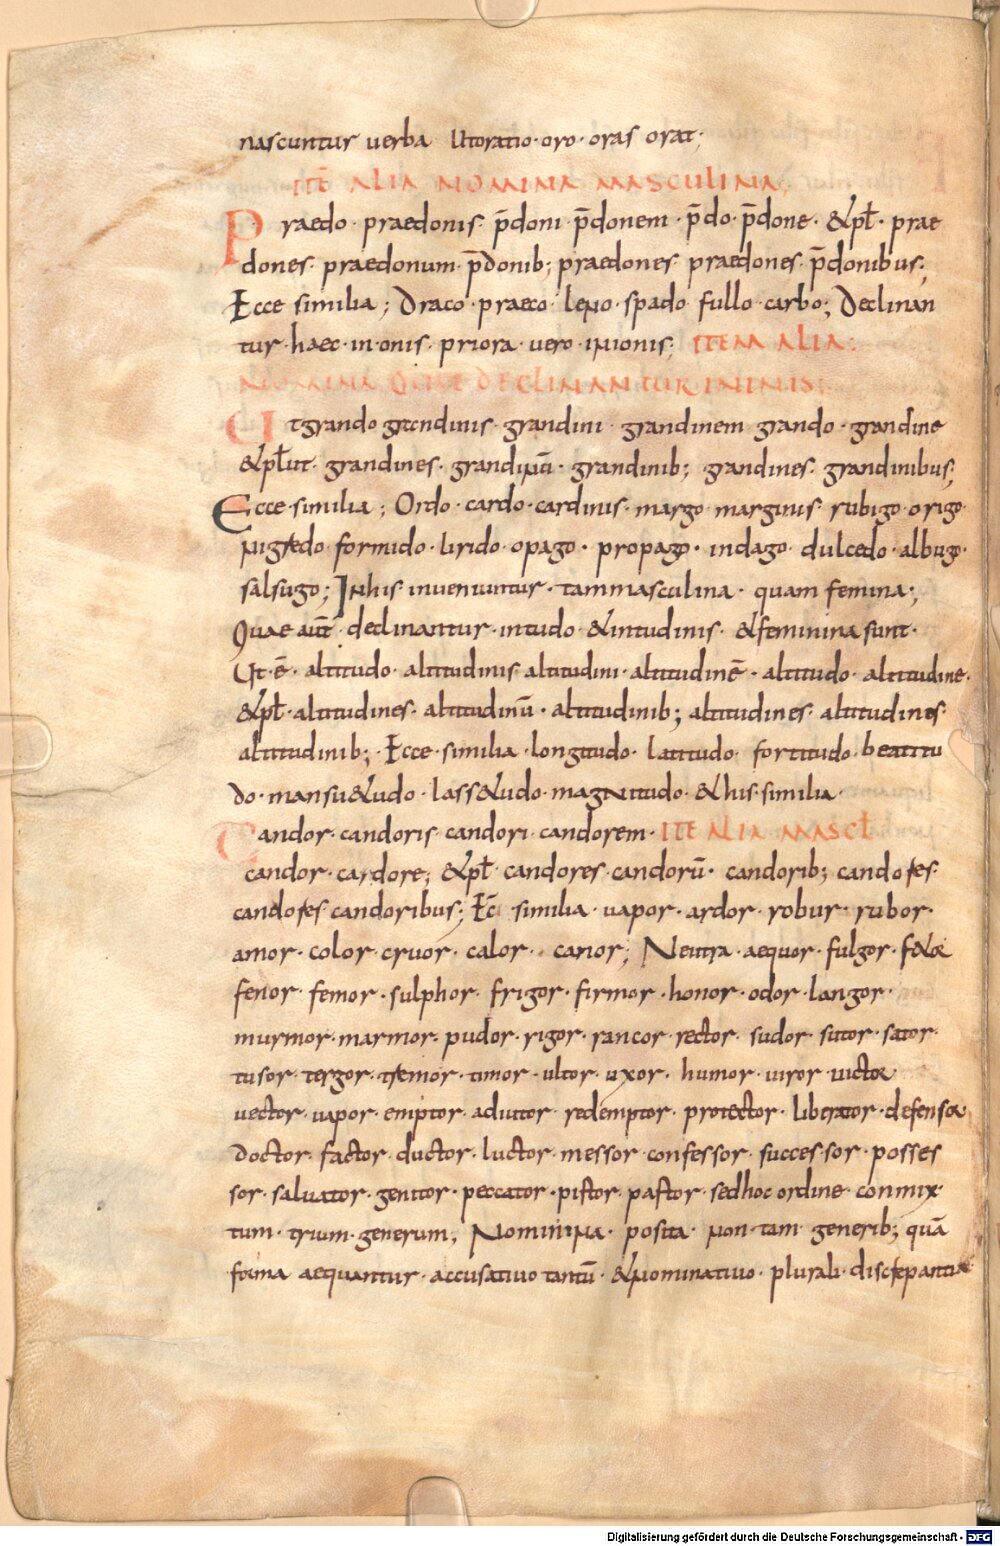 nascuntur uerba Utoratio · oro · oras orat ;
ITĒ ALIA NOMINA MASCULINA ;
Praedo · praedonis · p̄doni · p̄donem · p̄do · p̄done · &pł · prae
dones · praedonum · p̄donib; praedones · praedones · p̄donibus ;
Ecce similia ; Draco · praeco · leno · spado fullo · carbo ; Declinan
tur · haec · in · onis · priora · uero · inionis ; ITEM ALIA :
NOMINA QUAE DECLINANTUR ININIS :
Utgrando grandinis · grandini · grandinem grando · grandine
&płut · grandines · grandinū · grandinib; grandines · grandinibus ;
Ecce · similia ; Ordo · cardo · cardinis · margo · marginis · rubigo · origo
nigredo formido · lirido · opago · propago · indago · dulcedo · albugo ·
salsugo ; Inhis inueniuntur · tammasculina · quam femina ;
Quae aūt declinantur · intudo · &intudinis · &feminina sunt ·
Ut · ē · altitudo · altitudinis altitudini · altitudinē · altitudo · altitudine ·
&pł · altitudines · altitudinū · altitudinib; altitudines · altitudines ·
altitudinib; Ecce · similia · longitudo · latitudo · fortitudo · beatitu
do · mansu&udo · lass&udo · magnitudo · &his · similia ·
Candor · candoris · candori · candorem · ITĒ ALIA MASCŁ
candor · cardore ; &pł candores · candorū · candorib; candores ·
candores candoribus ; Ec̄ similia · uapor · ardor · robur · rubor ·
amor · color · cruor · calor · canor ; Neutra · aequor · fulgor · f&or
fenor · femor · sulphor · frigor · firmor · honor · odor · langor ·
murmor · marmor · pudor · rigor · rancor · rector · sudor · sutor · sator
tusor · tergor · tremor · timor · ultor · uxor · humor · uiror · uictor
uector · uapor · emptor · adiutor · redemptor · protector · liberator · defensor
doctor · factor · ductor · luctor · messor · confessor · successor · posses
sor · saluator · genitor · peccator · pistor · pastor · sedhoc ordine · conmix
tum · trium · generum ; Nominina · posita · non · tam · generib; quā
forma aequantur · accusatiuo tantū · &nominatiuo · plurali · discrepantur